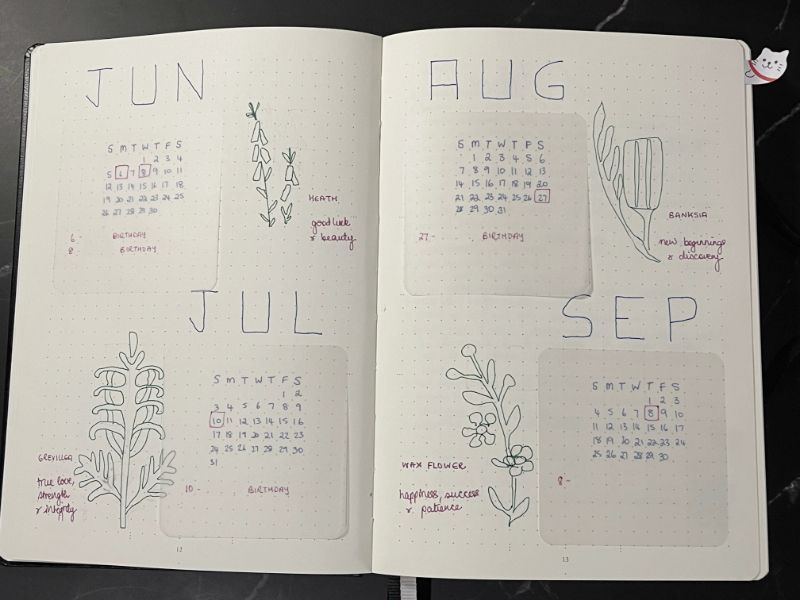 JUN
S M T W T F S
1 2 3 4
5 6 7 8 9 10 11
12 13 14 15 16 17 18
19 20 21 22 23 24 25
26 27 28 29 30
6 - BIRTHDAY
8 - BIRTHDAY
HEATH
good luck
& beauty
JUL
S M T W T F S
1 2
3 4 5 6 7 8 9
10 11 12 13 14 15 16
17 18 19 20 21 22 23
24 25 26 27 28 29 30
31
10 - BIRTHDAY
GREVILLEA
true love,
strength
& integrity
12
AUG
S M T W T F S
1 2 3 4 5 6
7 8 9 10 11 12 13
14 15 16 17 18 19 20
21 22 23 24 25 26 27
28 29 30 31
27 - BIRTHDAY
BANKSIA
new beginnings
& discovery
SEP
S M T W T F S
1 2 3
4 5 6 7 8 9 10
11 12 13 14 15 16 17
18 19 20 21 22 23 24
25 26 27 28 29 30
8 -
WAX FLOWER
happiness, success
& patience
13